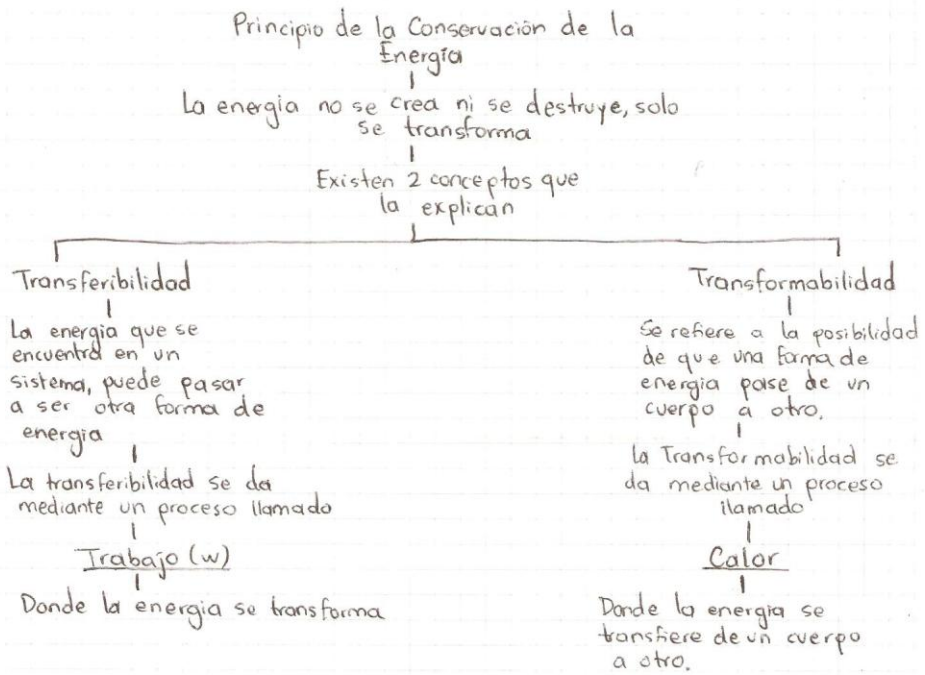 Principio de la Conservación de la
Energía
La energia no se crea ni se destruye, solo
se transforma
Existen 2 conceptos que
la explican
Transferibilidad
La energia que se
encuentra en un
sistema, puede pasar
a ser otra forma de
energia
La transferibilidad se da
mediante un proceso llamado
Trabajo (w)
Donde la energia se transforma
Transformabilidad
Se refiere a la posibilidad
de que una forma de
energia pase de un
cuerpo a otro.
la Transformabilidad se
da mediante un proceso
llamado
Calor
Donde la energia se
transfiere de un cuerpo
a otro.